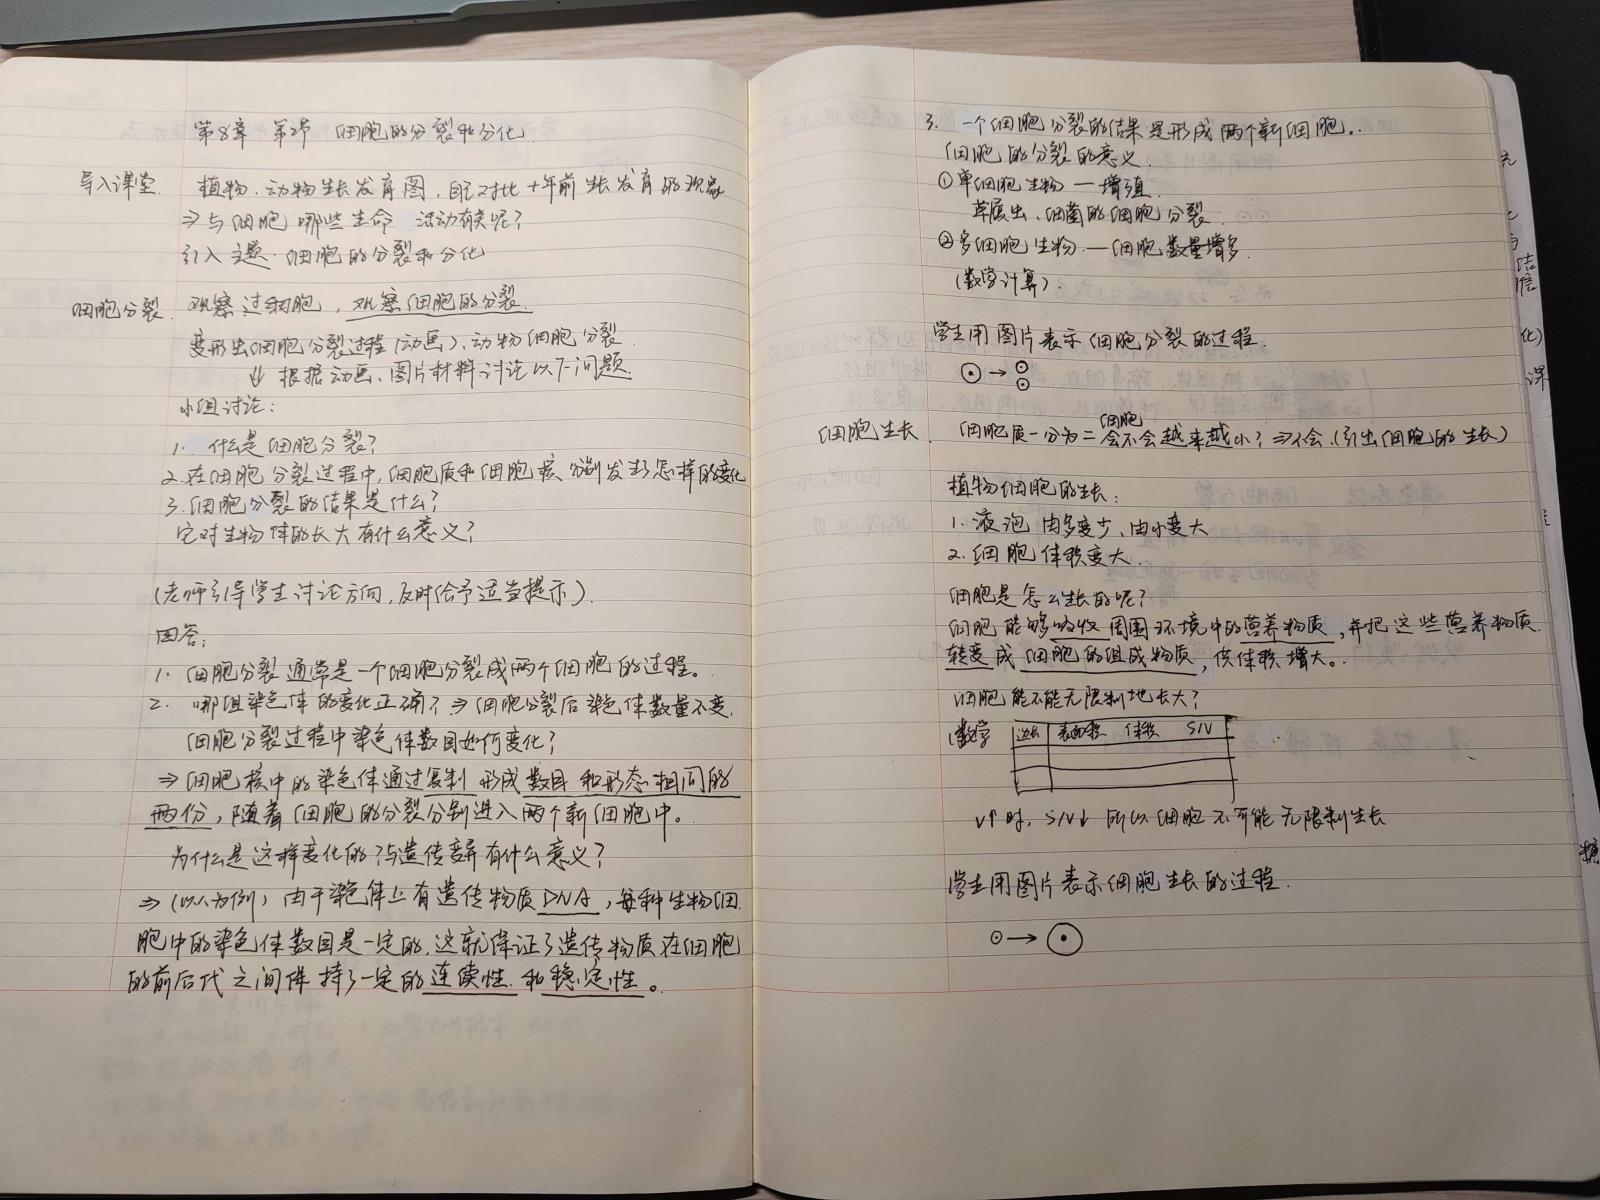 第8章 第2节 细胞的分裂和分化
导入课堂 植物、动物生长发育图,自己对比十年前生长发育的现象
⇒与细胞哪些生命活动有关呢?
引入主题 细胞的分裂和分化
细胞分裂 观察过细胞,观察细胞的分裂.
变形虫细胞分裂过程(动画)、动物细胞分裂
⇓ 根据动画、图片材料讨论以下问题
小组讨论:
1. 什么是细胞分裂?
2. 在细胞分裂过程中,细胞质和细胞核分别发生了怎样的变化
3. 细胞分裂的结果是什么?
它对生物体的长大有什么意义?
(老师引导学生讨论方向,及时给予适当提示).
回答:
1. 细胞分裂通常是一个细胞分裂成两个细胞的过程。
2. 哪组染色体的变化正确?⇒细胞分裂后染色体数量不变.
细胞分裂过程中染色体数目如何变化?
⇒细胞核中的染色体通过复制形成数目和形态相同的
两份,随着细胞的分裂分别进入两个新细胞中。
为什么是这样变化的?与遗传变异有什么意义?
⇒(以人为例)由于染色体上有遗传物质DNA,每种生物细
胞中的染色体数目是一定的.这就保证了遗传物质在细胞
的前后代之间保持了一定的连续性.和稳定性。
3. 一个细胞分裂的结果是形成两个新细胞.
细胞的分裂的意义.
①单细胞生物—增殖
草履虫、细菌的细胞分裂
②多细胞生物—细胞数量增多
(数学计算).
学生用图片表示细胞分裂的过程.
细胞生长. 细胞质一分为二 细胞会不会越来越小?⇒不会.(引出细胞的生长)
植物细胞的生长:
1. 液泡由多变少,由小变大
2. 细胞体积变大.
细胞是怎么生长的呢?
细胞能够吸收周围环境中的营养物质,并把这些营养物质
转变成细胞的组成物质,使体积增大。
细胞能不能无限制地长大?
(数学 边长 表面积 体积 S/V
V↑时, S/V↓ 所以细胞不可能无限制生长
学生用图片表示细胞生长的过程.